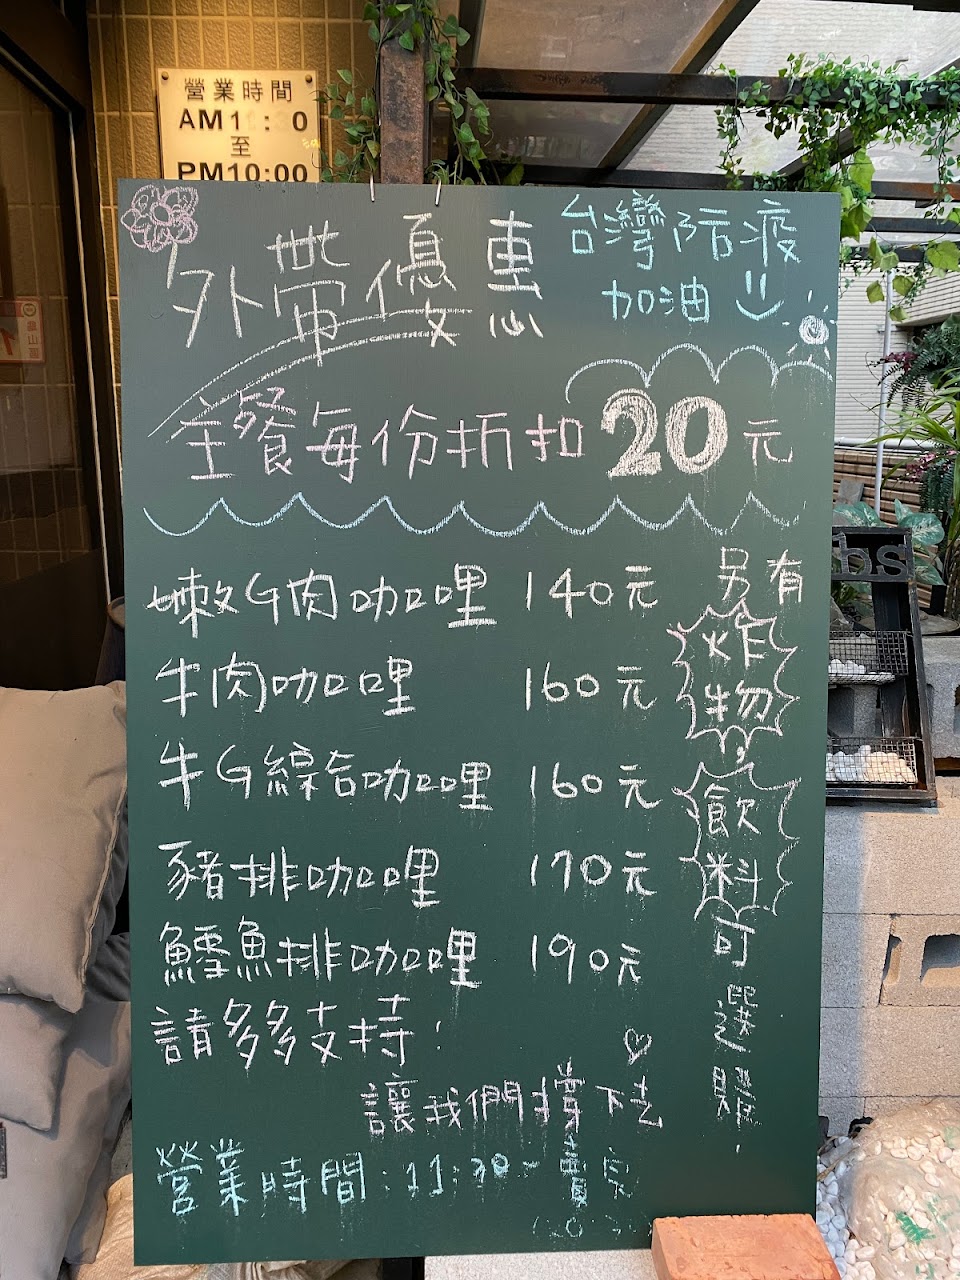 營業時間
AM11:30
至
PM10:00
外帶優惠
台灣防疫
加油
主餐每份折扣20元
嫩G肉咖哩 140元
牛肉咖哩 160元
牛G綜合咖哩 160元
豬排咖哩 170元
鱈魚排咖哩 190元
請多多支持!
讓我們撐下去
營業時間:11:30-賣完
另有炸物,飲料可選購.
bs